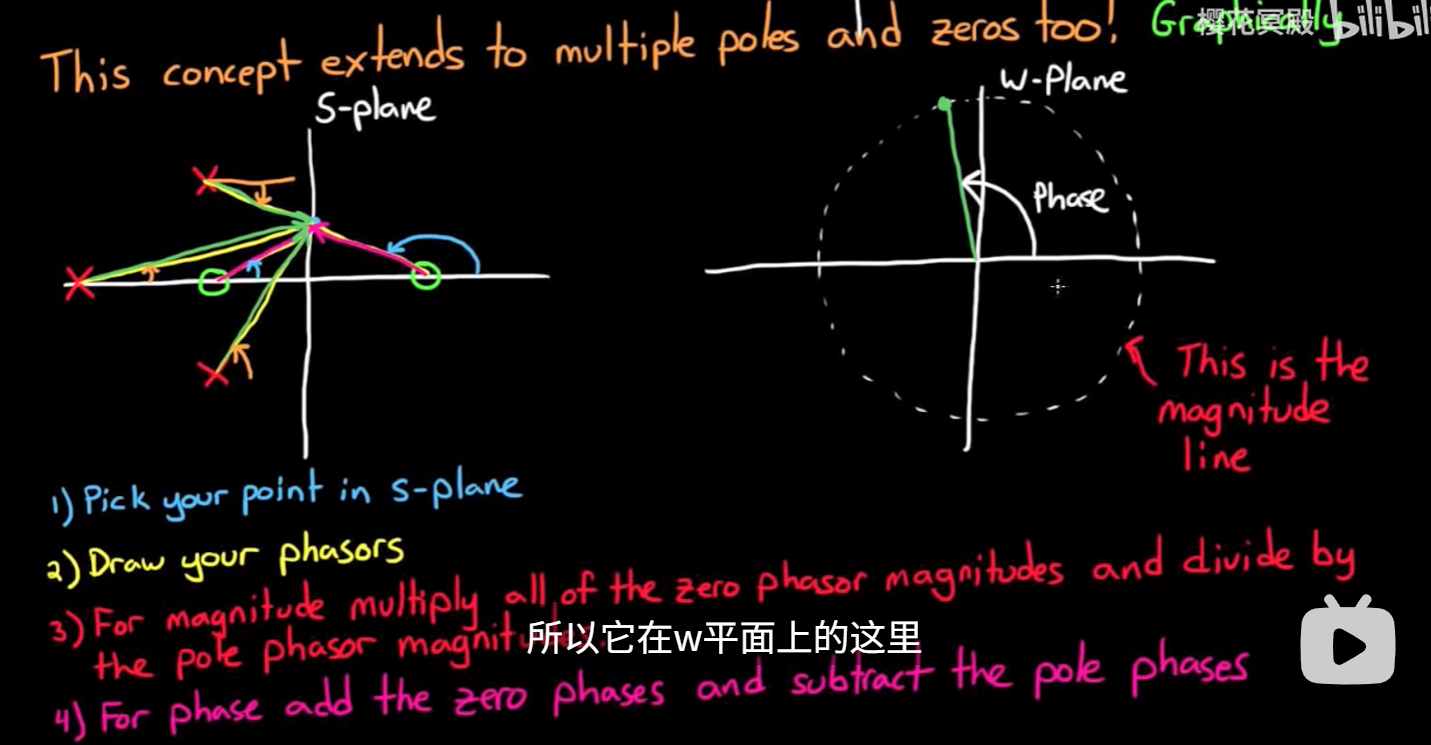 This concept extends to multiple poles and zeros too! Graphically
樱花冥殿 bilibili
S-plane
W-Plane
Phase
This is the
magnitude
line
1) Pick your point in s-plane
2) Draw your phasors
3) For magnitude multiply all of the zero phasor magnitudes and divide by
the pole phasor magnitudes.
所以它在w平面上的这里
4) For phase add the zero phases and subtract the pole phases